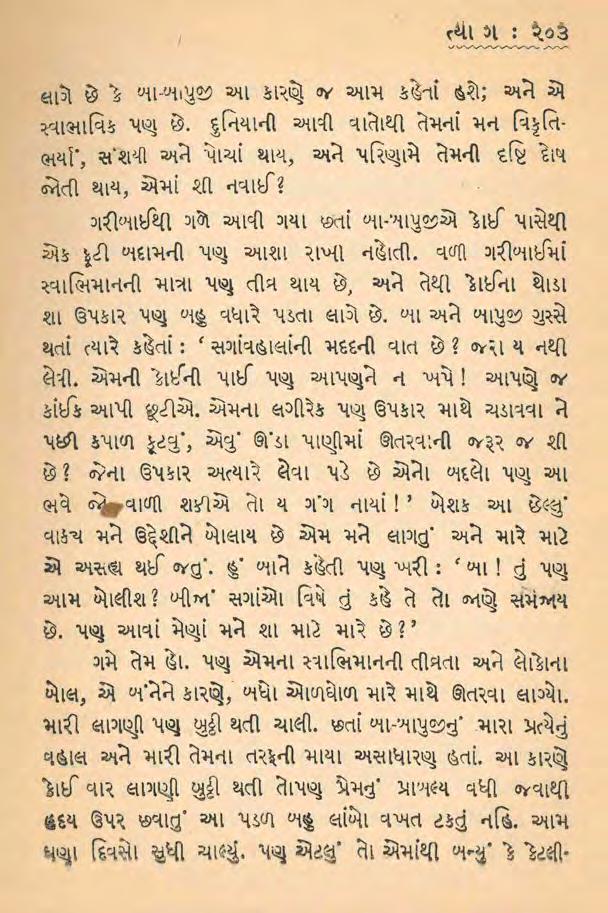 ત્યા ગ : ૨૦૩
લાગે છે કે બા-બાપુજી આ કારણે જ આમ કહેતાં હશે; અને એ
સ્વાભાવિક પણ છે. દુનિયાની આવી વાતોથી તેમનાં મન વિકૃતિ-
ભર્યાં, સંશયી અને પોચાં થાય, અને પરિણામે તેમની દૃષ્ટિ દોષ
જોતી થાય, એમાં શી નવાઈ ?
ગરીબાઈથી ગળે આવી ગયા છતાં બા-બાપુજીએ કોઈ પાસેથી
એક ફૂટી બદામની પણ આશા રાખી નહોતી. વળી ગરીબાઈમાં
સ્વાભિમાનની માત્રા પણ તીવ્ર થાય છે, અને તેથી કોઈના થોડા
શા ઉપકાર પણ બહુ વધારે પડતા લાગે છે. બા અને બાપુજી ગુસ્સે
થતાં ત્યારે કહેતાં : ‘ સગાંવહાલાંની મદદની વાત છે ? જરા ય નથી
લેવી. એમની કોઈની પાઈ પણ આપણને ન ખપે ! આપણે જ
કાંઈક આપી છૂટીએ. એમના લગીરેક પણ ઉપકાર માથે ચડાવવા ને
પછી કપાળ કૂટવું, એવું ઊંડા પાણીમાં ઊતરવાની જરૂર જ શી
છે ? જેના ઉપકાર અત્યારે લેવા પડે છે એનો બદલો પણ આ
ભવે જો વાળી શકીએ તો ય ગંગ નાયાં ! ’ બેશક આ છેલ્લું
વાક્ય મને ઉદ્દેશીને બોલાય છે એમ મને લાગતું અને મારે માટે
એ અસહ્ય થઈ જતું. હું બાને કહેતી પણ ખરી : ‘ બા ! તું પણ
આમ બોલીશ ? બીજાં સગાંઓ વિષે તું કહે તે તો જાણે સમજાય
છે. પણ આવાં મેણાં મને શા માટે મારે છે ? ’
ગમે તેમ હો. પણ એમના સ્વાભિમાનની તીવ્રતા અને લોકોના
બોલ, એ બંનેને કારણે, બધો ઓળઘોળ મારે માથે ઊતરવા લાગ્યો.
મારી લાગણી પણ બુઠ્ઠી થતી ચાલી. છતાં બા-બાપુજીનું મારા પ્રત્યેનું
વહાલ અને મારી તેમના તરફની માયા અસાધારણ હતાં. આ કારણે
કોઈ વાર લાગણી બુઠ્ઠી થતી તોપણ પ્રેમનું પ્રાબલ્ય વધી જવાથી
હૃદય ઉપર છવાતું આ પડળ બહુ લાંબો વખત ટકતું નહિ. આમ
ઘણા દિવસો સુધી ચાલ્યું. પણ એટલું તો એમાંથી બન્યું કે કેટલી-